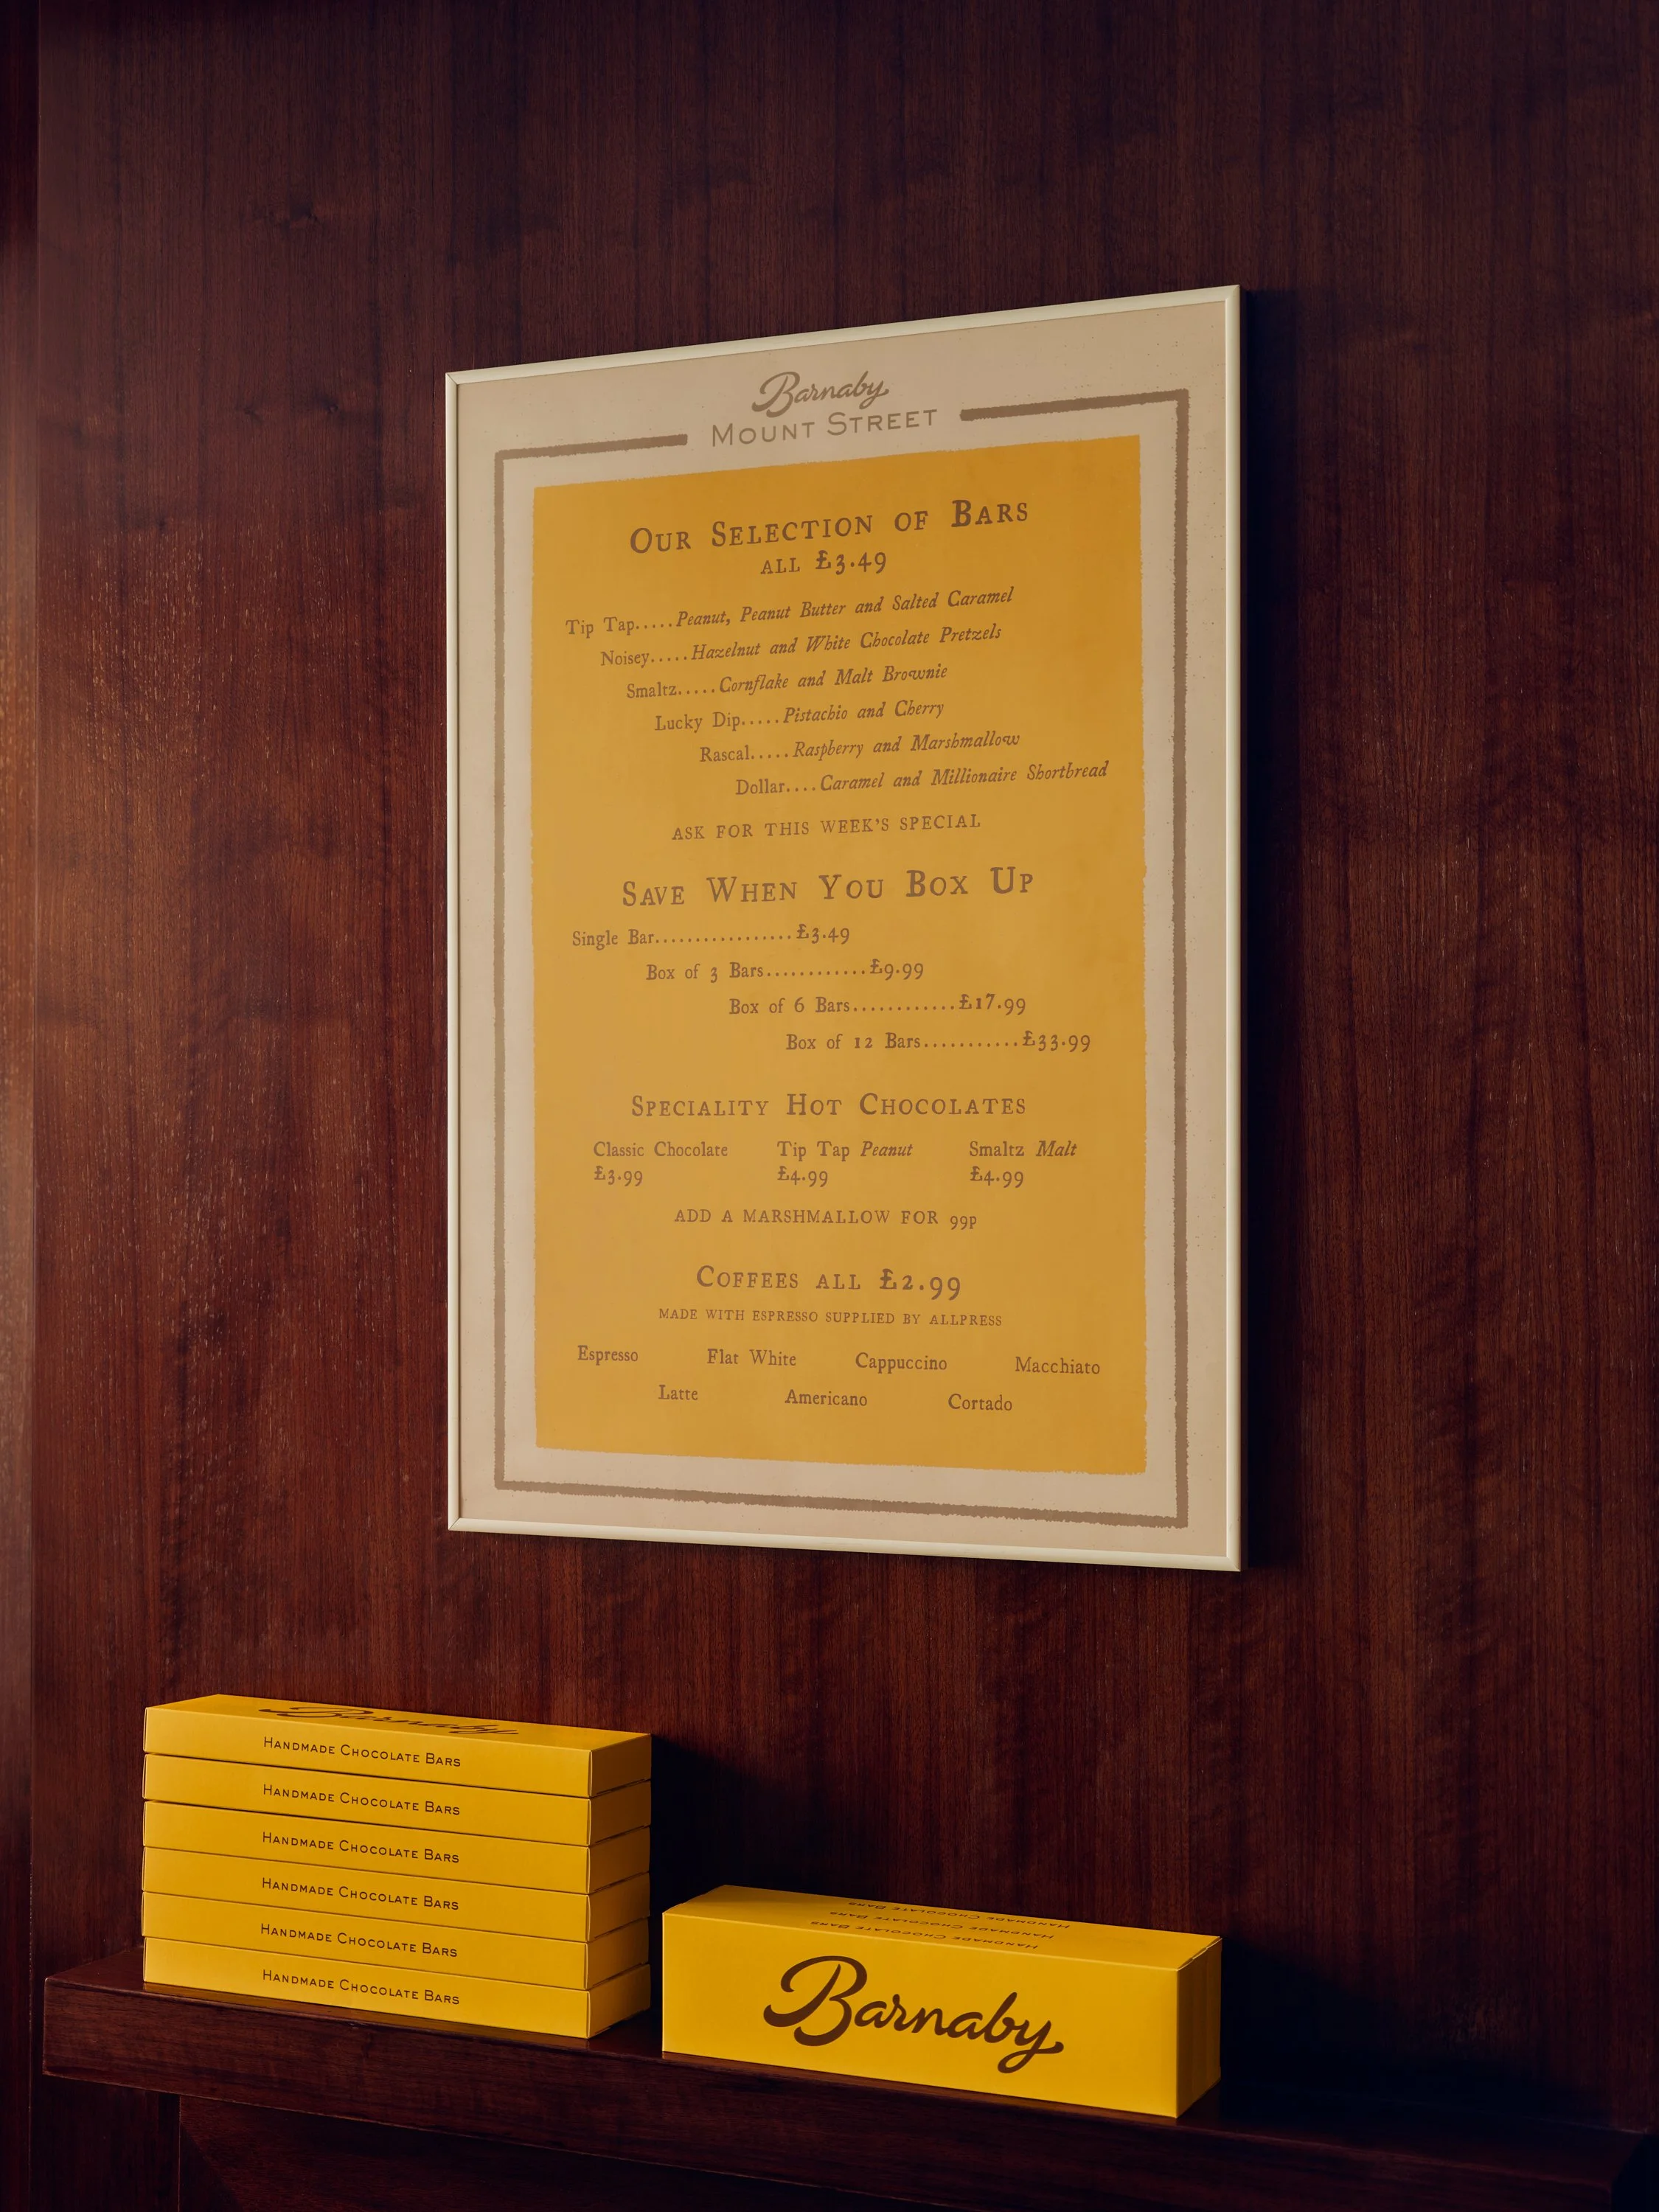 Barnaby
MOUNT STREET
OUR SELECTION OF BARS
ALL £3.49
Tip Tap.....Peanut, Peanut Butter and Salted Caramel
Noisey.....Hazelnut and White Chocolate Pretzels
Smaltz.....Cornflake and Malt Brownie
Lucky Dip.....Pistachio and Cherry
Rascal.....Raspberry and Marshmallow
Dollar....Caramel and Millionaire Shortbread
ASK FOR THIS WEEK'S SPECIAL
SAVE WHEN YOU BOX UP
Single Bar.................£3.49
Box of 3 Bars............£9.99
Box of 6 Bars............£17.99
Box of 12 Bars...........£33.99
SPECIALITY HOT CHOCOLATES
Classic Chocolate Tip Tap Peanut Smaltz Malt
£3.99 £4.99 £4.99
ADD A MARSHMALLOW FOR 99P
COFFEES ALL £2.99
MADE WITH ESPRESSO SUPPLIED BY ALLPRESS
Espresso Flat White Cappuccino Macchiato
Latte Americano Cortado
Barnaby
HANDMADE CHOCOLATE BARS
HANDMADE CHOCOLATE BARS
HANDMADE CHOCOLATE BARS
HANDMADE CHOCOLATE BARS
HANDMADE CHOCOLATE BARS
HANDMADE CHOCOLATE BARS
HANDMADE CHOCOLATE BARS
HANDMADE CHOCOLATE BARS
HANDMADE CHOCOLATE BARS
Barnaby